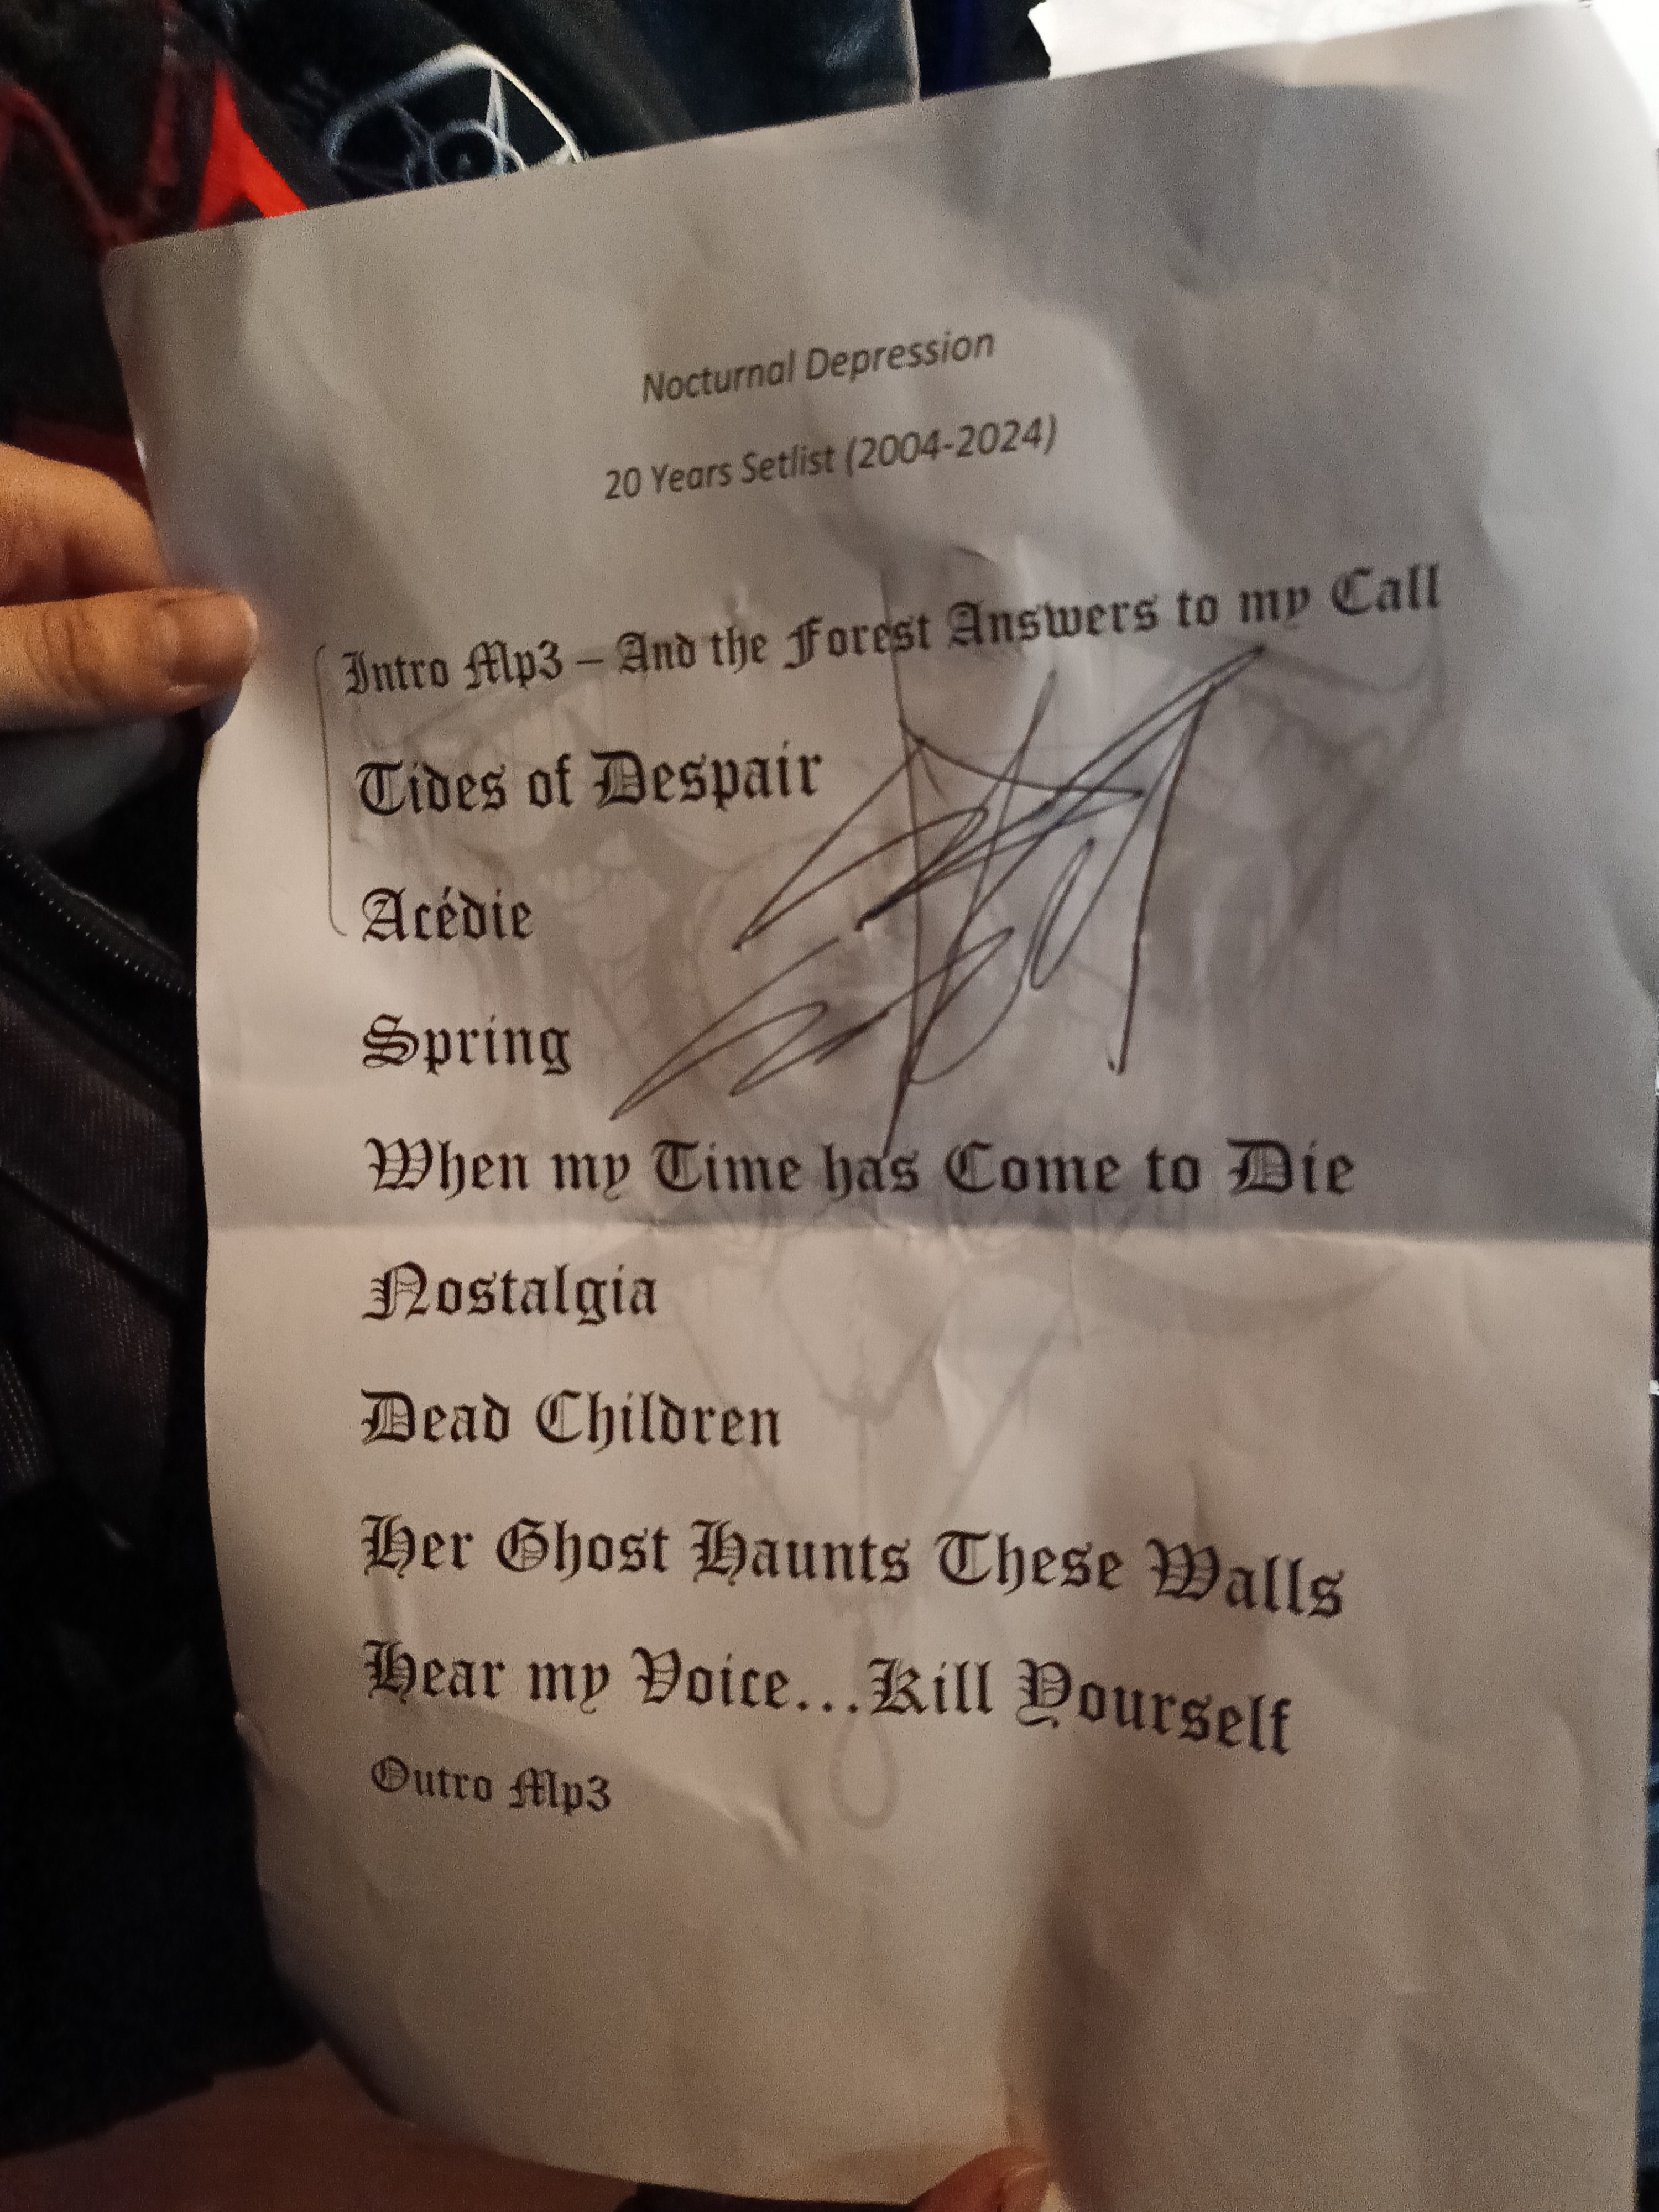 Nocturnal Depression
20 Years Setlist (2004-2024)
Intro Mp3 – And the Forest Answers to my Call
Tides of Despair
Acédie
Spring
When my Time has Come to Die
Nostalgia
Dead Children
Her Ghost Haunts These Walls
Hear my Voice...Kill Yourself
Outro Mp3